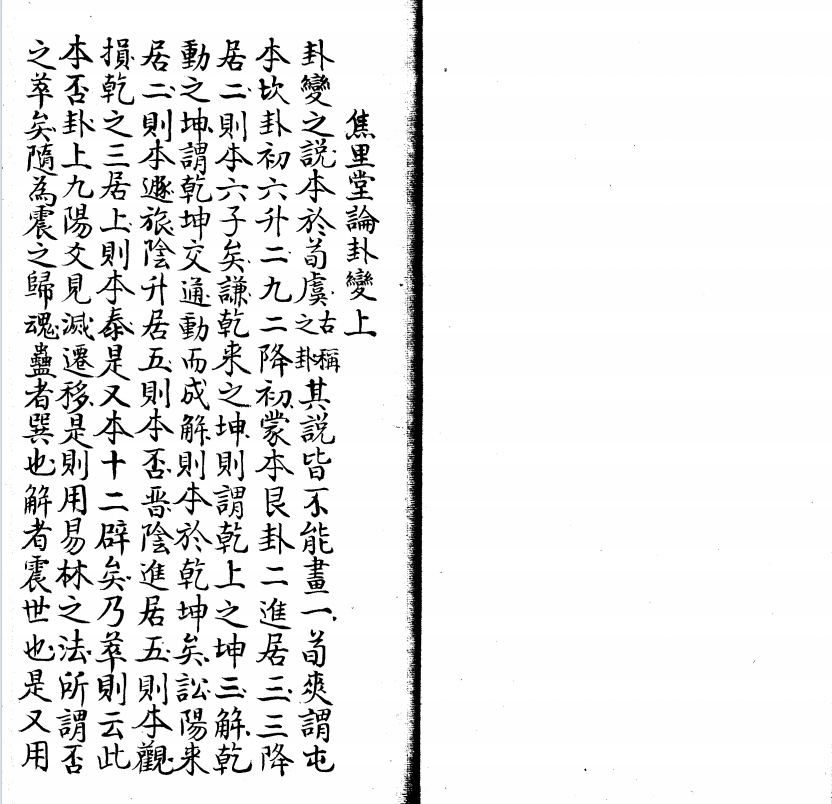 焦里堂論卦變上
卦變之說本於荀虞古稱之卦其說皆不能畫一荀爽謂屯
本坎卦初六升二九二降初蒙本艮卦二進居三三降
居二則本六子矣謙乾來之坤則謂乾上之坤三解乾
動之坤謂乾坤交通動而成解則本於乾坤矣訟陽來
居二則本遯旅陰升居五則本否晋陰進居五則本觀
損乾之三居上則本泰是又本十二辟矣乃萃則云此
本否卦上九陽爻見滅遷移是則用易林之法所謂否
之萃矣隨為震之歸魂蠱者巽也解者震世也是又用